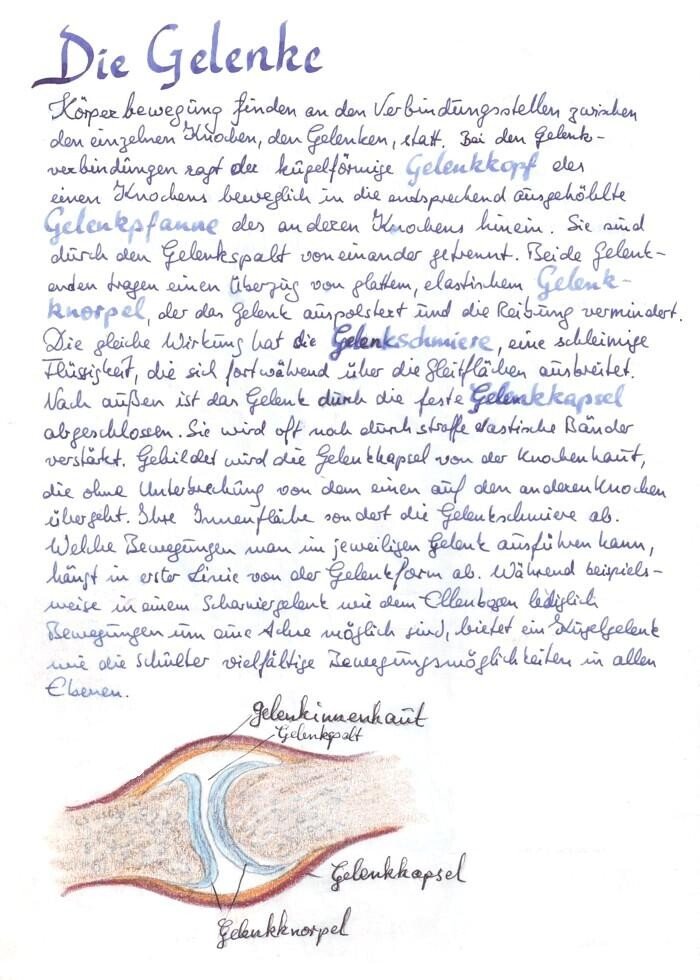 Die Gelenke
Körperbewegung finden an den Verbindungsstellen zwischen
den einzelnen Knochen, den Gelenken, statt. Bei den Gelenk-
verbindungen ragt der kugelförmige Gelenkkopf des
einen Knochens beweglich in die entsprechend ausgehöhlte
Gelenkpfanne des anderen Knochens hinein. Sie sind
durch den Gelenkspalt voneinander getrennt. Beide Gelenk-
enden tragen einen Überzug von glattem, elastischem Gelenk-
knorpel, der das Gelenk auspolstert und die Reibung vermindert.
Die gleiche Wirkung hat die Gelenkschmiere, eine schleimige
Flüssigkeit, die sich fortwährend über die Gleitflächen ausbreitet.
Nach außen ist das Gelenk durch die feste Gelenkkapsel
abgeschlossen. Sie wird oft noch durch straffe elastische Bänder
verstärkt. Gebildet wird die Gelenkkapsel von der Knochenhaut,
die ohne Unterbrechung von dem einen auf den anderen Knochen
übergeht. Ihre Innenfläche sondert die Gelenkschmiere ab.
Welche Bewegungen man im jeweiligen Gelenk ausführen kann,
hängt in erster Linie von der Gelenkform ab. Während beispiels-
weise in einem Scharniergelenk wie dem Ellenbogen lediglich
Bewegungen um eine Achse möglich sind, bietet ein Kugelgelenk
wie die Schulter vielfältige Bewegungsmöglichkeiten in allen
Ebenen.
Gelenkinnenhaut
Gelenkspalt
Gelenkkapsel
Gelenkknorpel